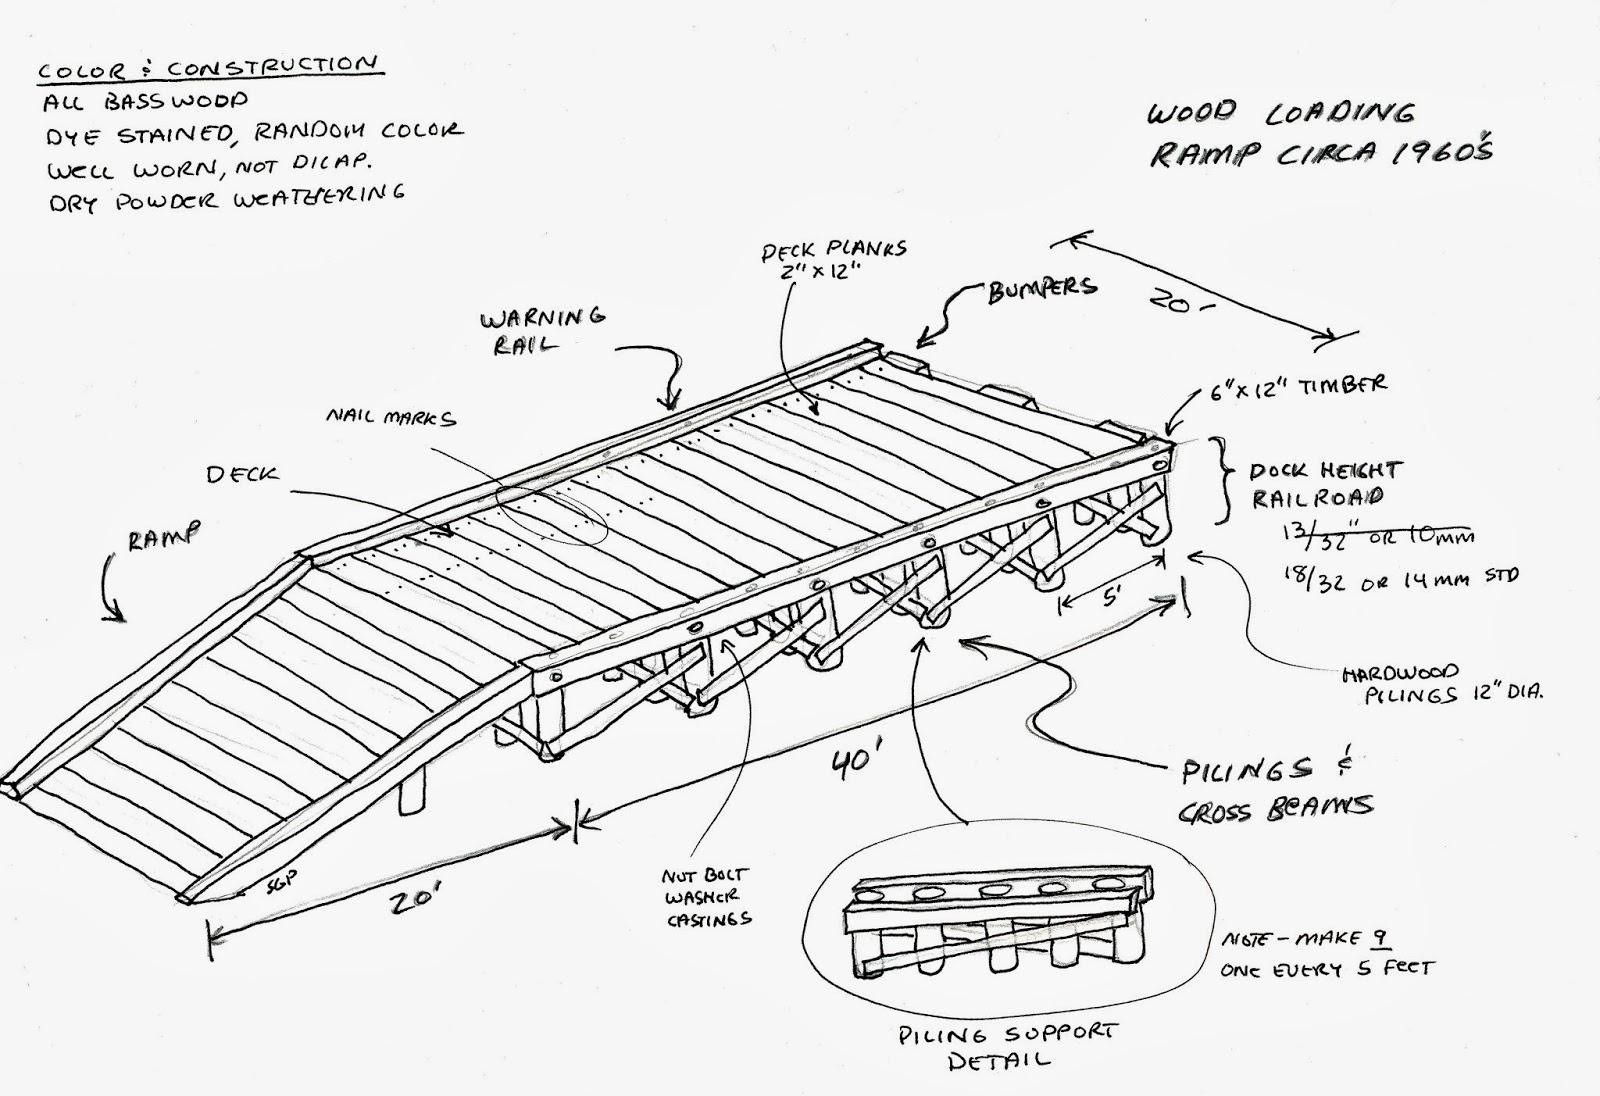 COLOR & CONSTRUCTION
ALL BASSWOOD
DYE STAINED, RANDOM COLOR
WELL WORN, NOT DILAP.
DRY POWDER WEATHERING
WOOD LOADING
RAMP CIRCA 1960'S
DECK PLANKS
2" x 12"
BUMPERS
20'
WARNING
RAIL
6" x 12" TIMBER
NAIL MARKS
DECK
RAMP
DOCK HEIGHT
RAILROAD
13/32" OR 10mm
18/32 OR 14MM STD
5'
HARDWOOD
PILINGS 12" DIA.
40'
PILINGS &
CROSS BEAMS
SGP
20'
NUT BOLT
WASHER
CASTINGS
NOTE - MAKE 9
ONE EVERY 5 FEET
PILING SUPPORT
DETAIL